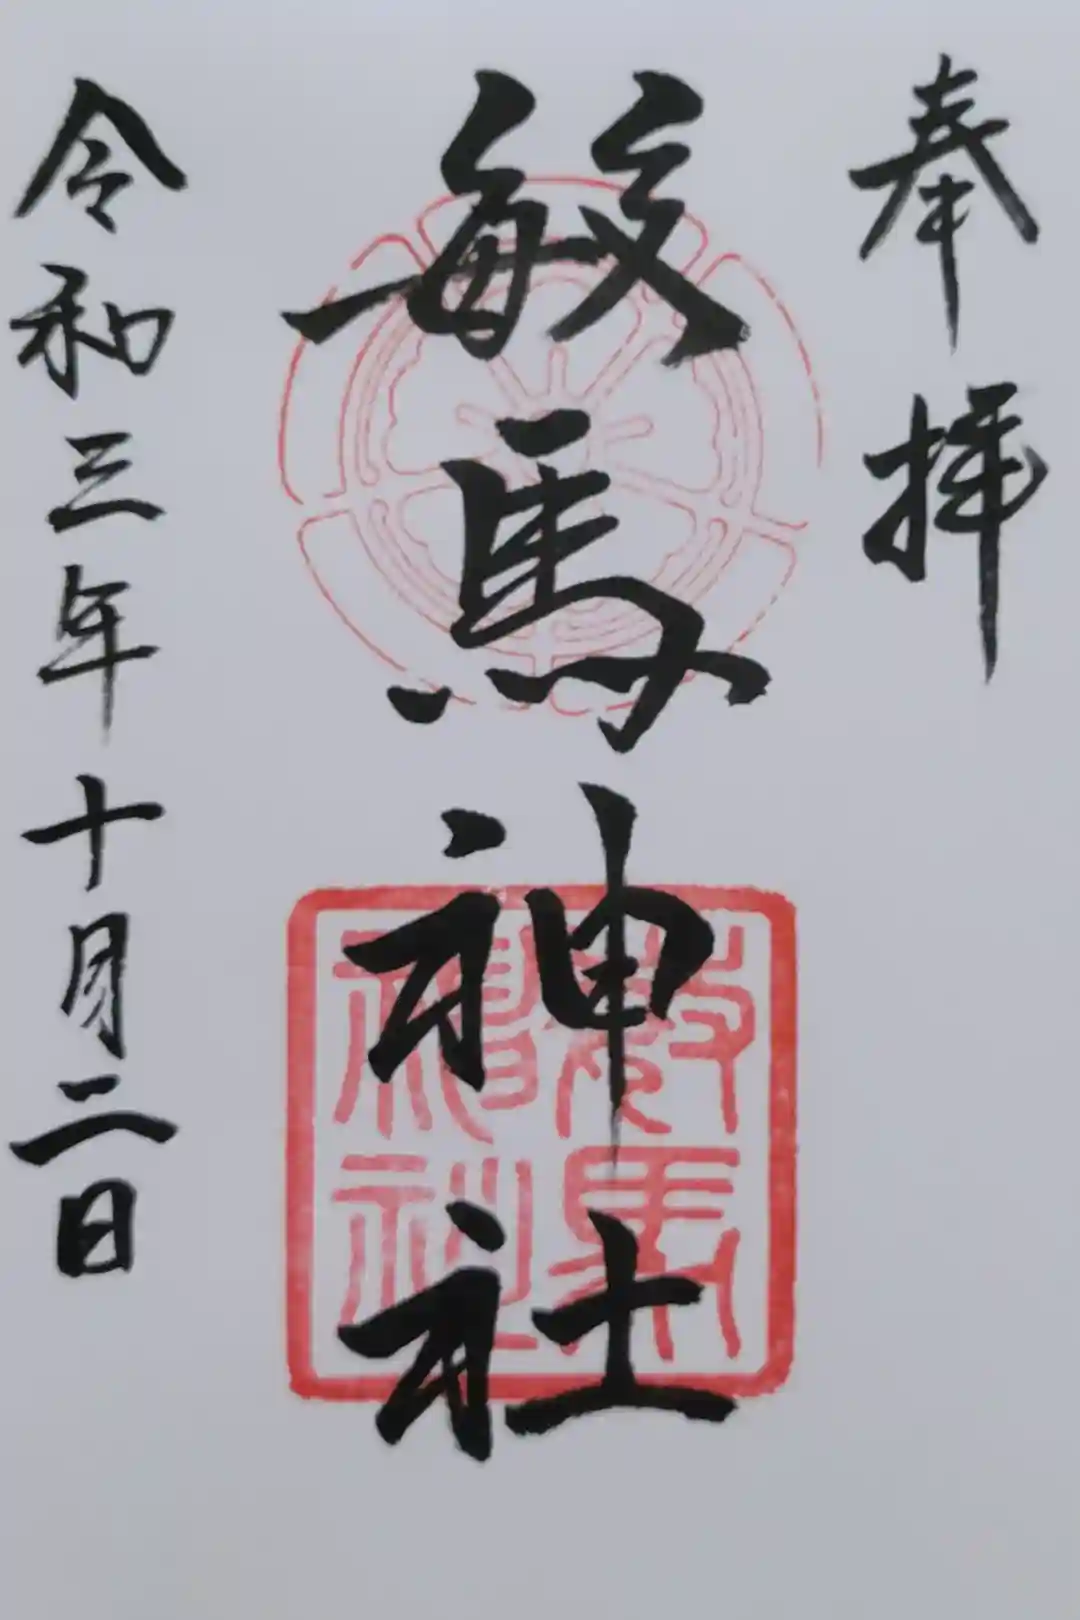 奉拝
敏馬神社
令和三年十月二日
敏馬神社